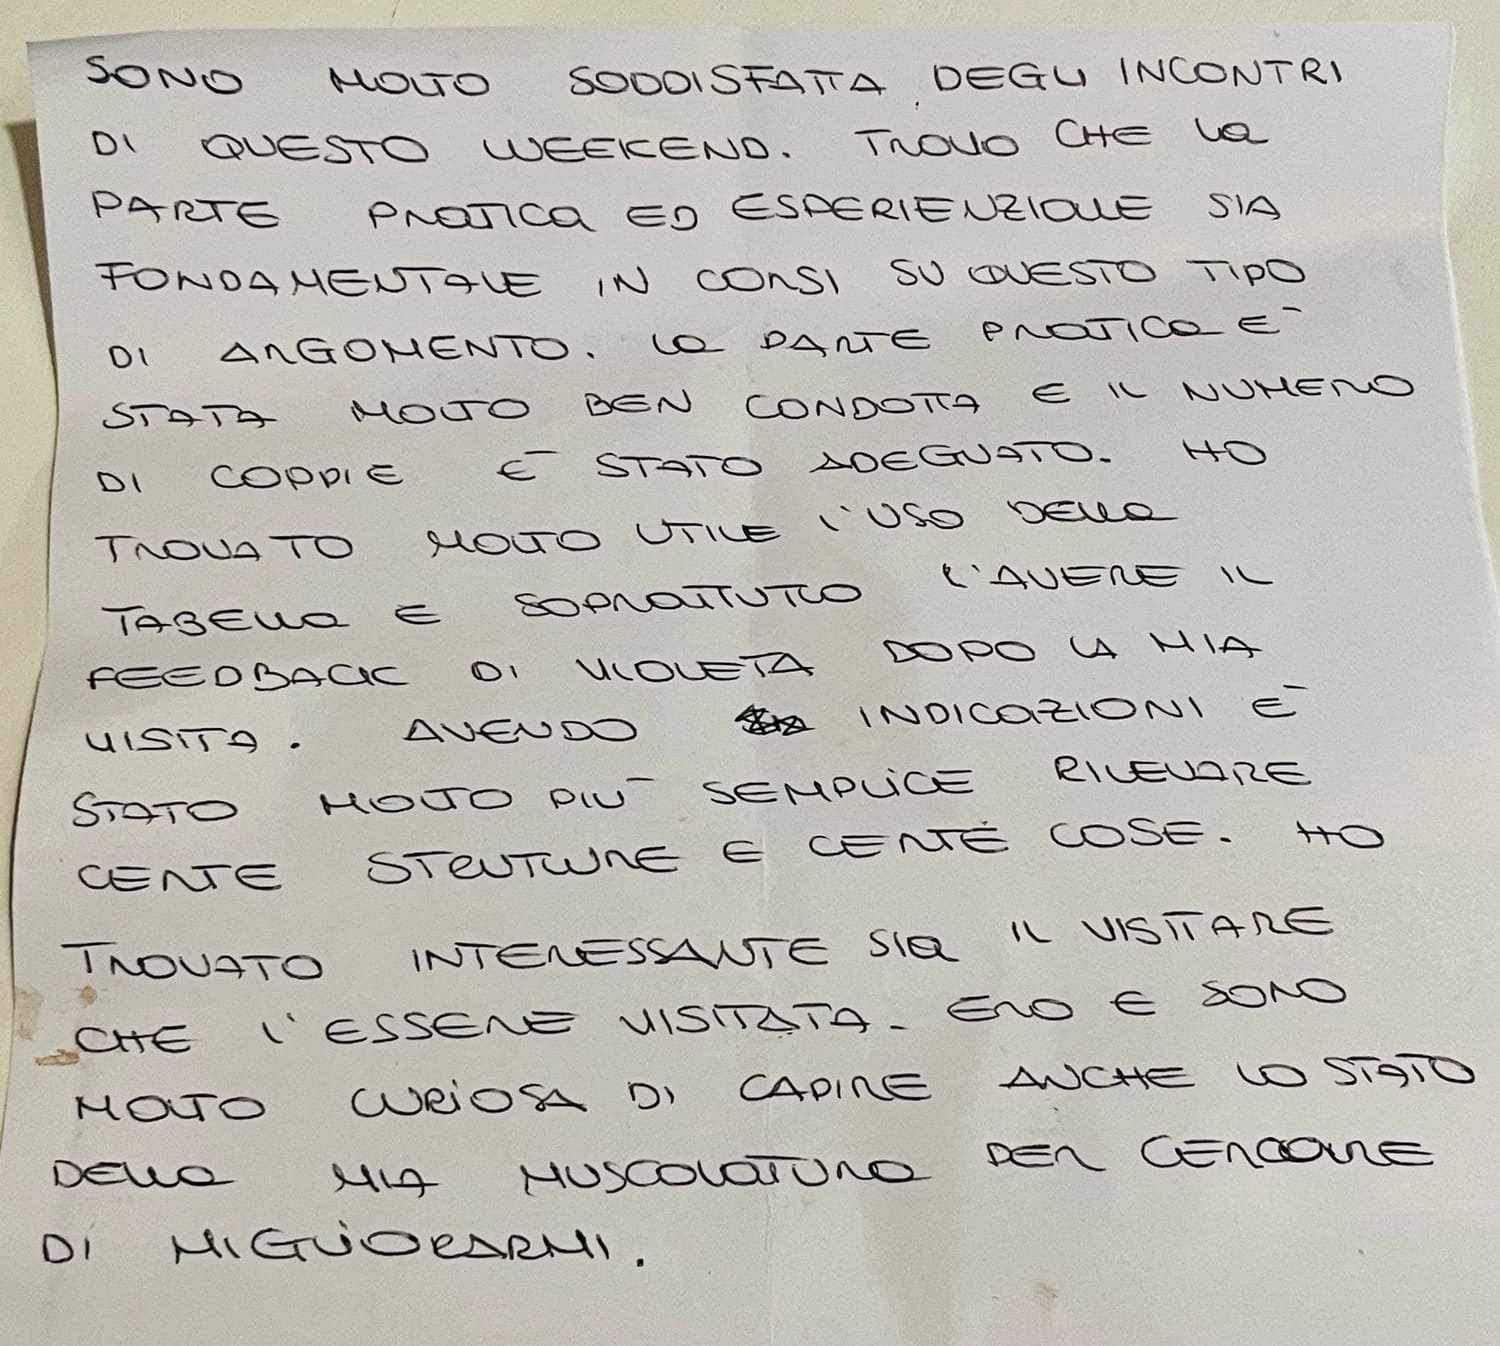 SONO MOLTO SODDISFATTA DEGLI INCONTRI
DI QUESTO WEEKEND. TROVO CHE LA
PARTE PRATICA ED ESPERIENZIALE SIA
FONDAMENTALE IN CORSI SU QUESTO TIPO
DI ARGOMENTO. LA PARTE PRATICA E'
STATA MOLTO BEN CONDOTTA E IL NUMERO
DI COPPIE E' STATO ADEGUATO. HO
TROVATO MOLTO UTILE L'USO DELLA
TABELLA E SOPRATTUTTO L'AVERE IL
FEEDBACK DI VIOLETA DOPO LA MIA
VISITA. AVENDO INDICAZIONI E'
STATO MOLTO PIU' SEMPLICE RILEVARE
CERTE STRUTTURE E CERTE COSE. HO
TROVATO INTERESSANTE SIA IL VISITARE
CHE L'ESSERE VISITATA. ERO E SONO
MOLTO CURIOSA DI CAPIRE ANCHE LO STATO
DELLA MIA MUSCOLATURA PER CERCARE
DI MIGLIORARMI.